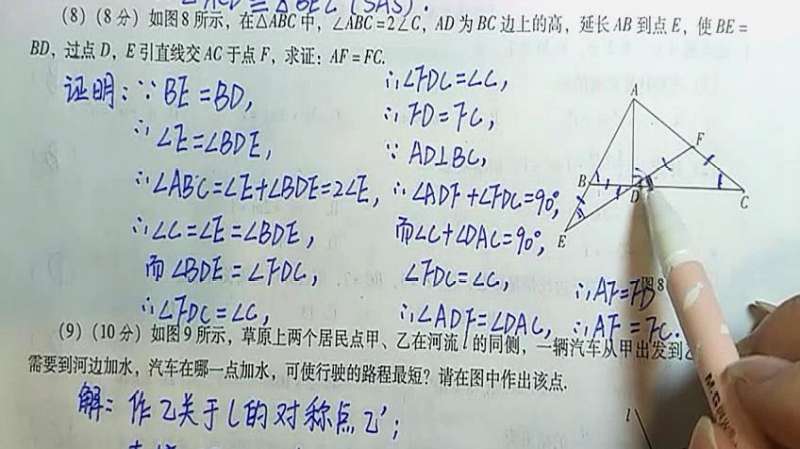 ∠ACD≌△BEC (SAS).
(8)(8分)如图8所示,在△ABC中,∠ABC=2∠C,AD为BC边上的高,延长AB到点E,使BE=
BD,过点D,E引直线交AC于点F,求证:AF=FC.
证明:∵BE=BD,
∴∠E=∠BDE,
∴∠ABC=∠E+∠BDE=2∠E,
∴∠C=∠E=∠BDE,
而∠BDE=∠FDC,
∴∠FDC=∠C,
∴∠FDC=∠C,
∴FD=FC,
∵AD⊥BC,
∴∠ADF+∠FDC=90°,
而∠C+∠DAC=90°,
∠FDC=∠C,
∴∠ADF=∠DAC,
∴AF=FD
∴AF=FC.
A
F
B
D
C
E
图8
(9)(10分)如图9所示,草原上两个居民点甲、乙在河流l的同侧,一辆汽车从甲出发到乙
需要到河边加水,汽车在哪一点加水,可使行驶的路程最短?请在图中作出该点.
解:作乙关于l的对称点乙′;
l
M&G